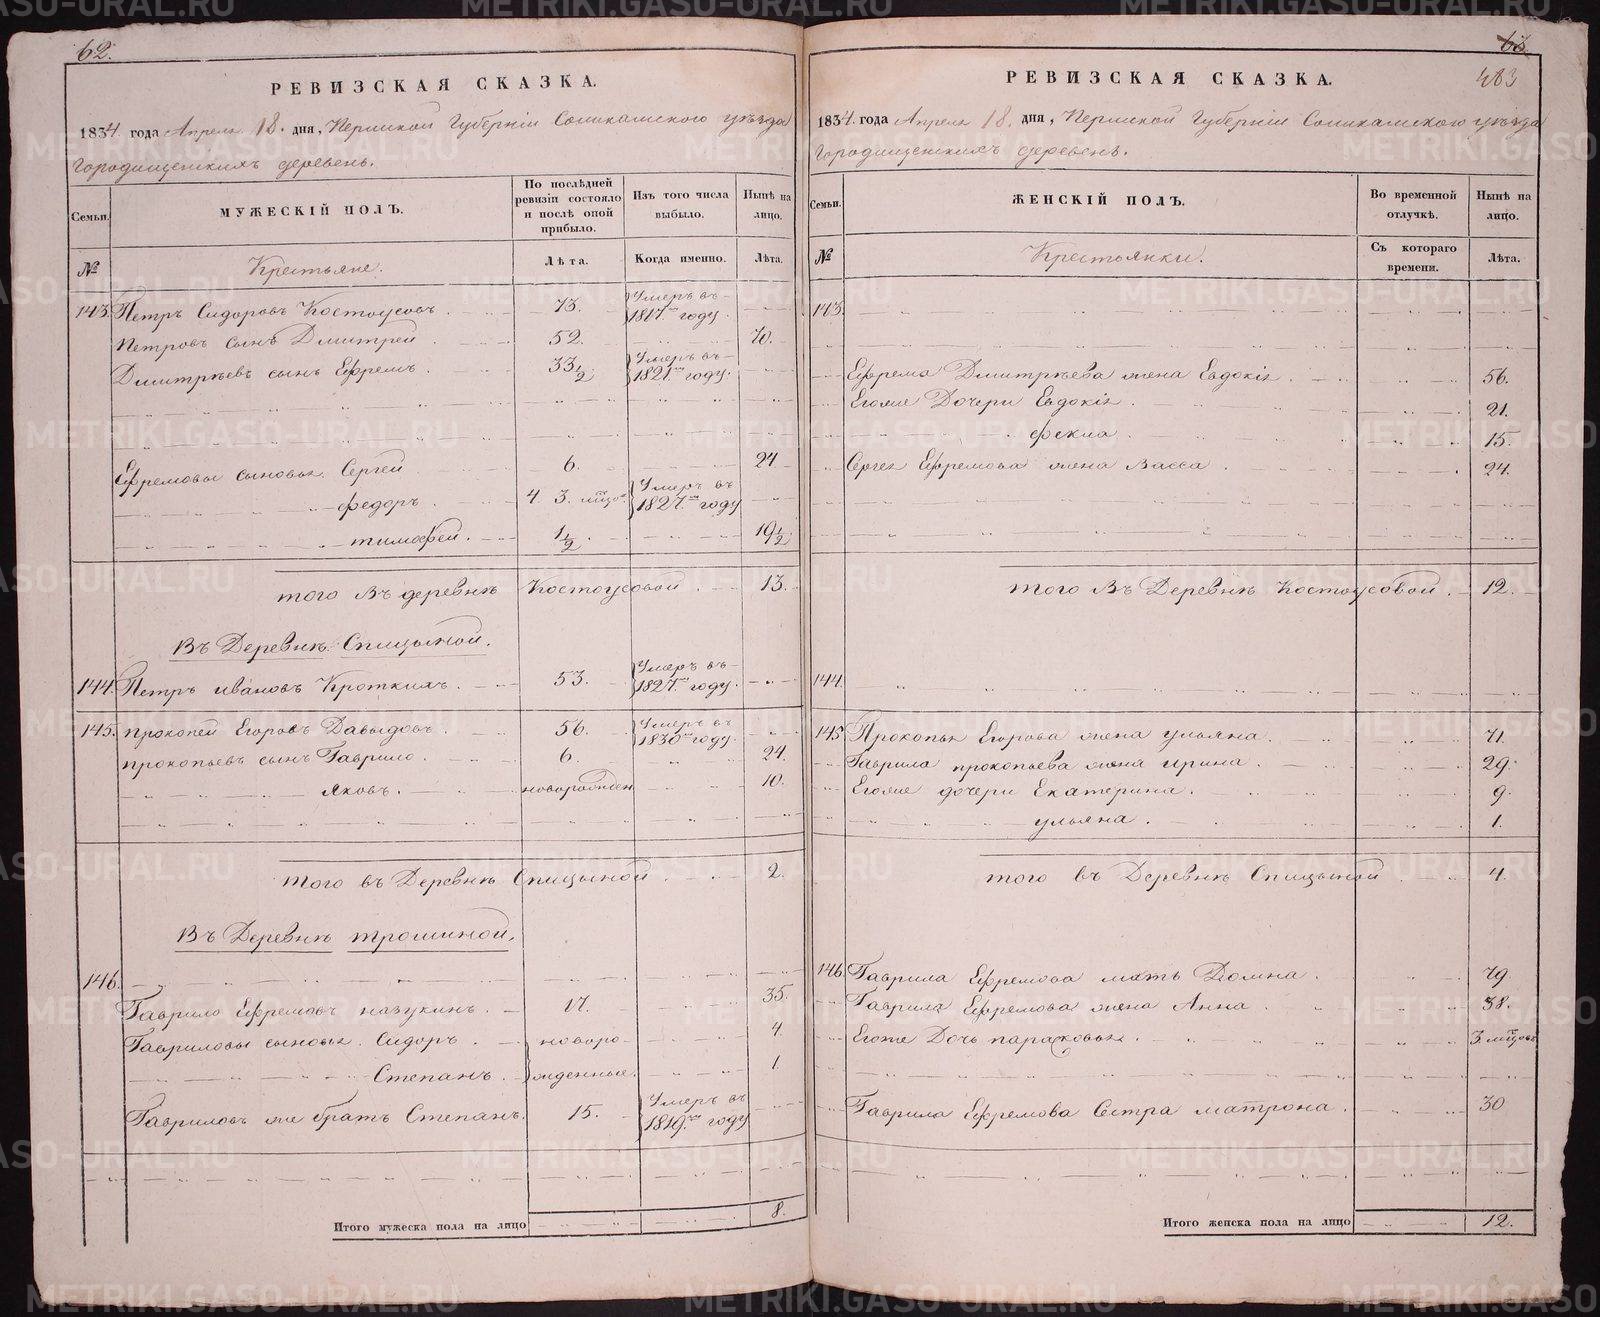 62.
РЕВИЗСКАЯ СКАЗКА.
1834. года Апреля 18. дня, Пермской Губерніи Соликамскаго уѣзда
Городищенскихъ деревень.
Семьи.
МУЖЕСКІЙ ПОЛЪ.
По послѣдней ревизіи состояло и послѣ оной прибыло.
Изъ того числа выбыло.
Нынѣ на лицо.
№
Крестьяне.
Лѣта.
Когда именно.
Лѣта.
143. Петръ Сидоровъ Костоусовъ. 73. Умеръ въ 1817.мъ году.
Петровъ сынъ Дмитрей 52. 70.
Дмитріевъ сынъ Ефремъ. 33 1/2 Умеръ въ 1821.мъ году.
Ефремовы сыновья Сергей 6. 24
федоръ. 4. 3. Умеръ въ 1827.мъ году
тимофей. 1/2. 19 1/2.
того въ деревнѣ Костоусовой. 13.
Въ Деревнѣ Спицыной.
144. Петръ ивановъ Кроткихъ. 53. Умеръ въ 1827.мъ году.
145. прокопей Егоровъ Давыдовъ. 56. Умеръ въ 1830мъ году.
прокопьевъ сынъ Гаврило. 6. 24.
Яковъ. новорожден 10.
того въ Деревнѣ Спицыной 2.
Въ Деревнѣ трошиной.
146.
Гаврило Ефремовъ назукинъ. 17. 35.
Гавриловы сыновья. Сидоръ. новоро- 4.
Степанъ. жденные. 1.
Гавриловъ же братъ Степанъ. 15. Умеръ въ 1819.мъ году
Итого мужеска пола на лицо 8.
63
483
РЕВИЗСКАЯ СКАЗКА.
1834. года Апреля 18. дня, Пермской Губерніи Соликамскаго уѣзда
Городищенскихъ деревень.
Семьи.
ЖЕНСКІЙ ПОЛЪ.
Во временной отлучкѣ.
Нынѣ на лицо.
№
Крестьянки.
Съ котораго времени.
Лѣта.
143.
Ефрема Дмитріева жена Евдокія. 56.
Егоже Дочери Евдокія. 21.
фекла. 15.
Сергея Ефремова жена Васса. 24.
того въ Деревнѣ Костоусовой. 12.
144.
145 Прокопья Егорова жена ульяна. 71.
Гаврила прокопьева жена ирина. 29.
Егоже дочери Екатерина. 9.
ульяна. 1.
того въ Деревнѣ Спицыной 4.
146. Гаврила Ефремова мать Домна. 79
Гаврила Ефремова жена Анна 38.
Егоже Дочь парасковья. 3.
Гаврила Ефремова Сестра матрона. 30
Итого женска пола на лицо 12.
METRIKI.GASO-URAL.RU